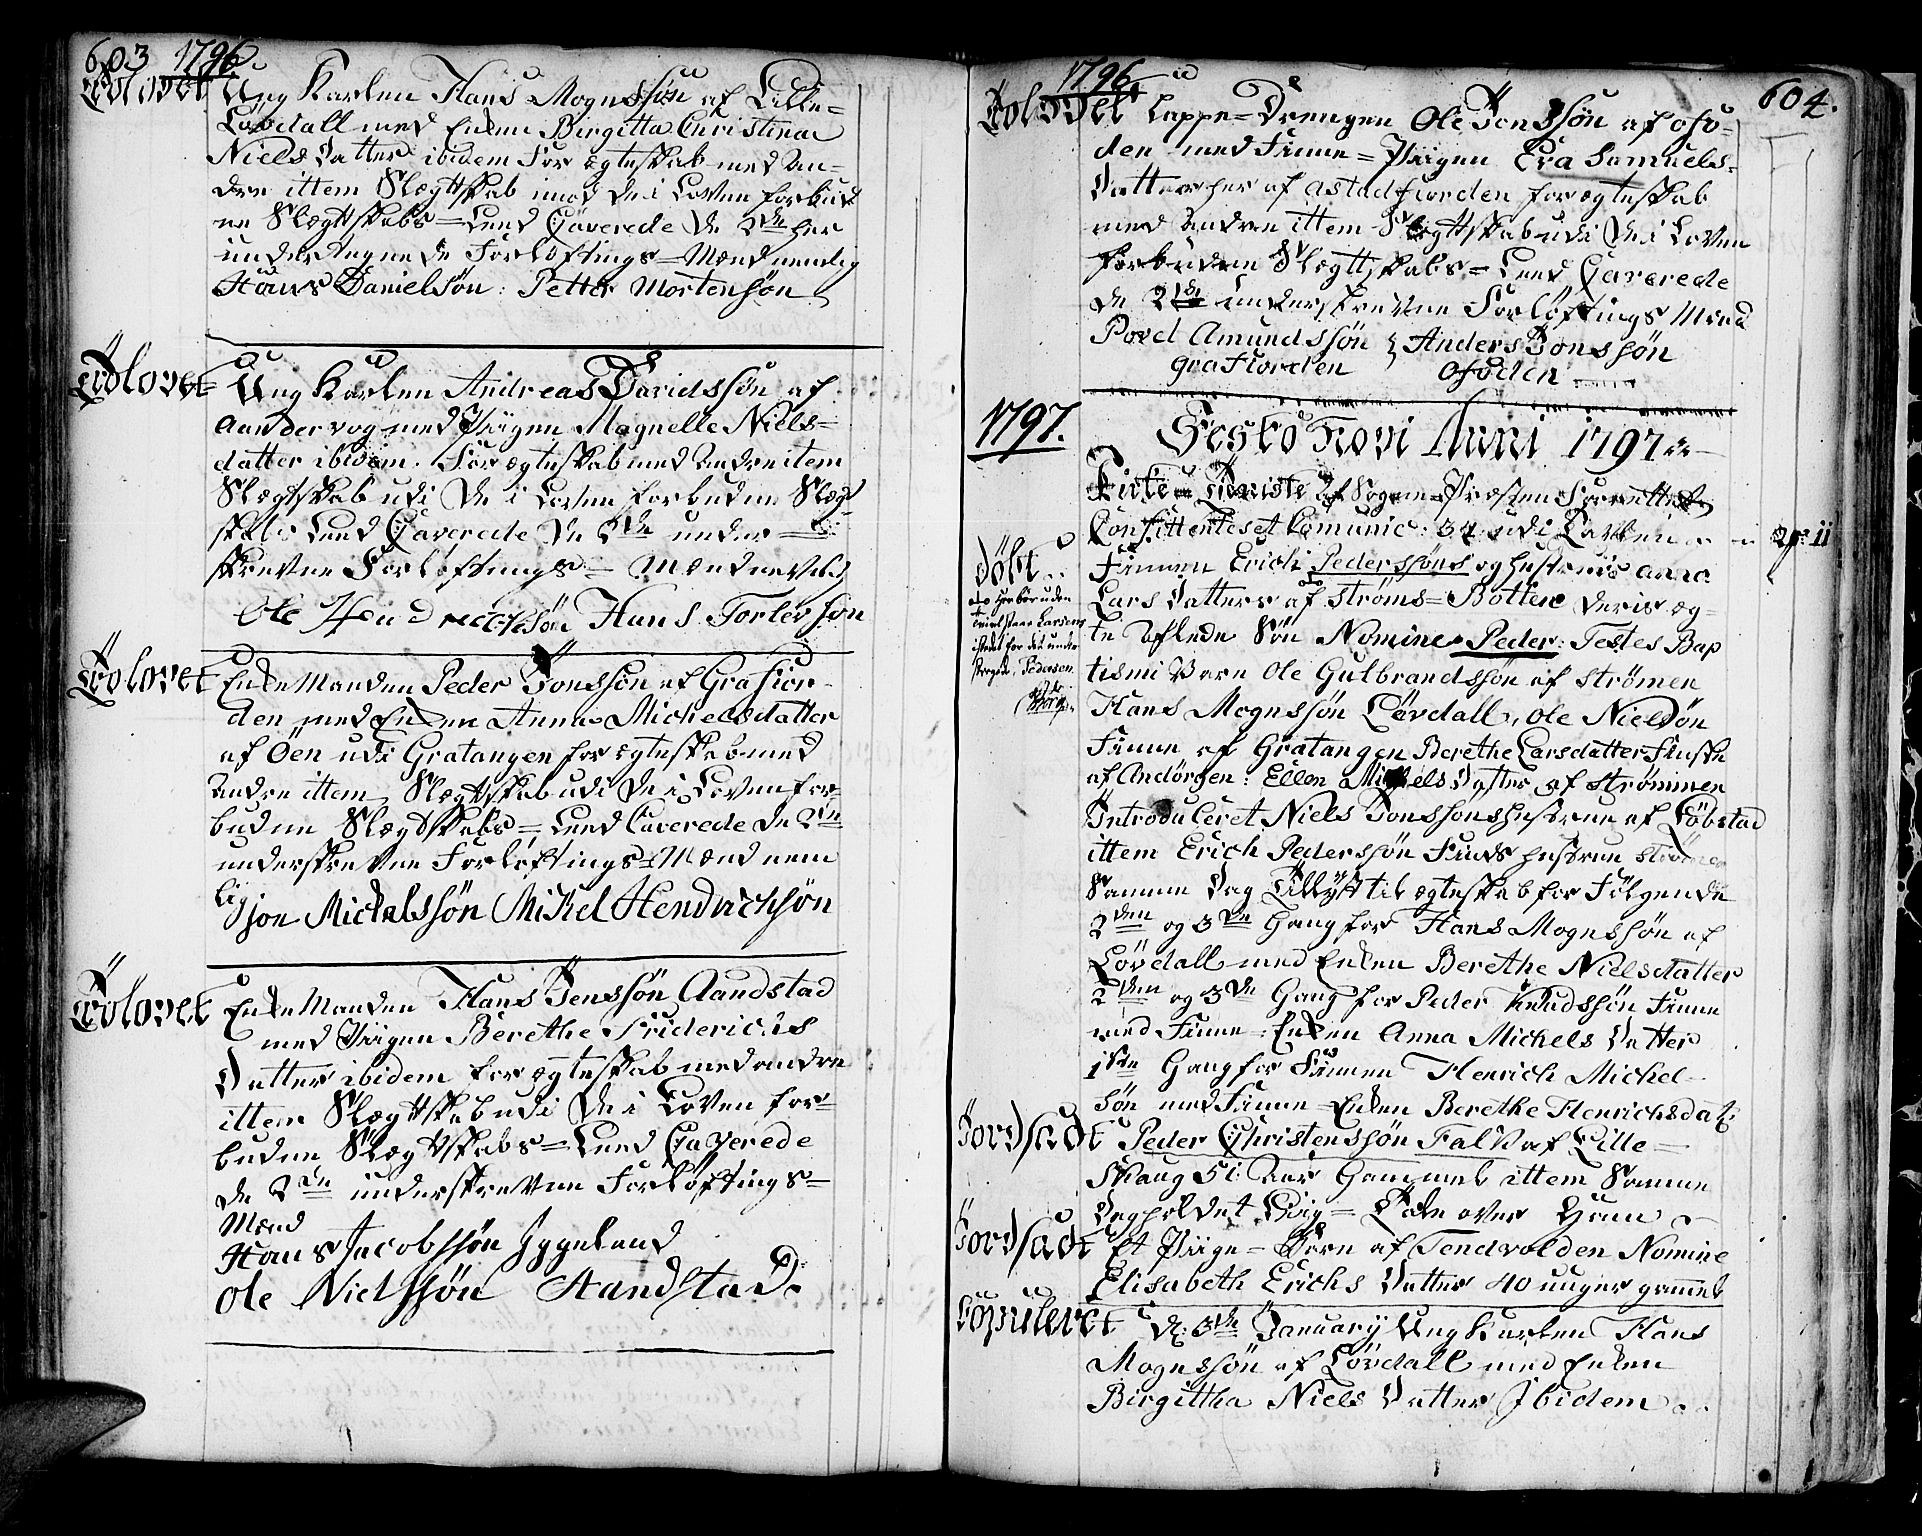 603 1796.
Trolovet Ung Karlen Hans Mognssøn af Lille=
Løvdall med Enken Birgitta Christina
Niels Datter ibidem for ægteskab med an=
dre ittem Slægtskab mod de i Loven forbud
ne Slægtskabs=Leed Caverede De 2de her
under tegnede Forløftings=Mænd nemlig
Hans Danielsøn: Petter Mortensøn
Trolovet Ung Karlen Andreas Davidssøn af
Aandervog med Piigen Magnelle Niels=
datter ibidem. For ægteskab med andre item
Slægtskab udi De i Loven forbudne Slægt
skabs Leed Caverede De 2de under=
skrevne Forløftnings=Mænd nevnlig
Ole Hendrichsøn Hans Torlevsøn
Trolovet Enke Manden Peder Jonssøn af Grafior
den med Enken Anna Michelsdatter
af Öen udi Gratangen for ægteskab med
Andre ittem Slægtskab udi De i Loven for=
budne Slægtskabs=Leed Caverede De 2de
underskrevne Forløftnings=Mænd nem
lig jon Mickelssøn Mikel Hendrichsøn
Trolovet Enke Manden Hans Jenssøn Aandstad
med Piigen Berethe Friderichs
Datter ibidem for ægteskab med andre
ittem Slægtskab udi De i Loven for=
budne Slægtskabs=Leed Caverede
De 2de underskrevne Forløftings=
Mænd
Hans Jacobssøn Iggeland
Ole Nielssøn Aandstad.
1796 604.
Trolovet Lappe=Drengen Ole Jonssøn af ofo=
den med Finne=Piigen Eva Samuels=
Datter her af Astadfiorden for ægteskab
med andre ittem Slægtskab udi De i Loven
forbudne Slægtskabs=Leed Caverede
De 2de underskrevne Forløftings Mænd
Povel Amundssøn Anders Jonssøn
Grafiorden Ofoden
1797. Festo Novi Anni 1797
Tieneste af Sogne=Præsten Forrettet
Confitentes et Comunic: 34 udi Kirken
Døbt Finnen Erich Pederssøns og hustrues Anna
Lars Datters af Strøms=Botten deris æg=
te aflede Søn Nomine Peder: Testes Bap
tismi Vare Ole Gulbrandssøn af Strømen
Hans Mognssøn Løvdall, Ole Nielsøn
Finne af Gratangen Berethe Larsdatter Finske
af Andørgen: Ellen Mickels Datter af Strømmen
Introduceret Niels Jonssøns hustrue af Løbstad
ittem Erich Pederssøn Finds hustrue Strømen
Samme Dag Tillyst til ægteskab for Følgende
2den og 3de Gang for Hans Mognssøn af
Løvdall med Enken Berethe Nielsdatter
2den og 3de Gang for Peder Knudssøn Finne
med Finne=Enken Anna Michels Datter
1ste Gang for Finnen Henrich Mickel=
søn med Finne=Enken Berethe Henrichsdat:
Jordfæst Peder Christenssøn Falk af Lille=
Skaug 51 Aar Gammel ittem Samme
Dag holdet Liig=Tale over Ham
Jordfæst Et Piige=Barn af Tendvolden Nomine
Elisabeth Erichs Datter 40 uuger gammel
Copuleret D: 3de January Ung Karlen Hans
Mognssøn af Løvdall med Enken
Birgitha Niels Datter Ibidem